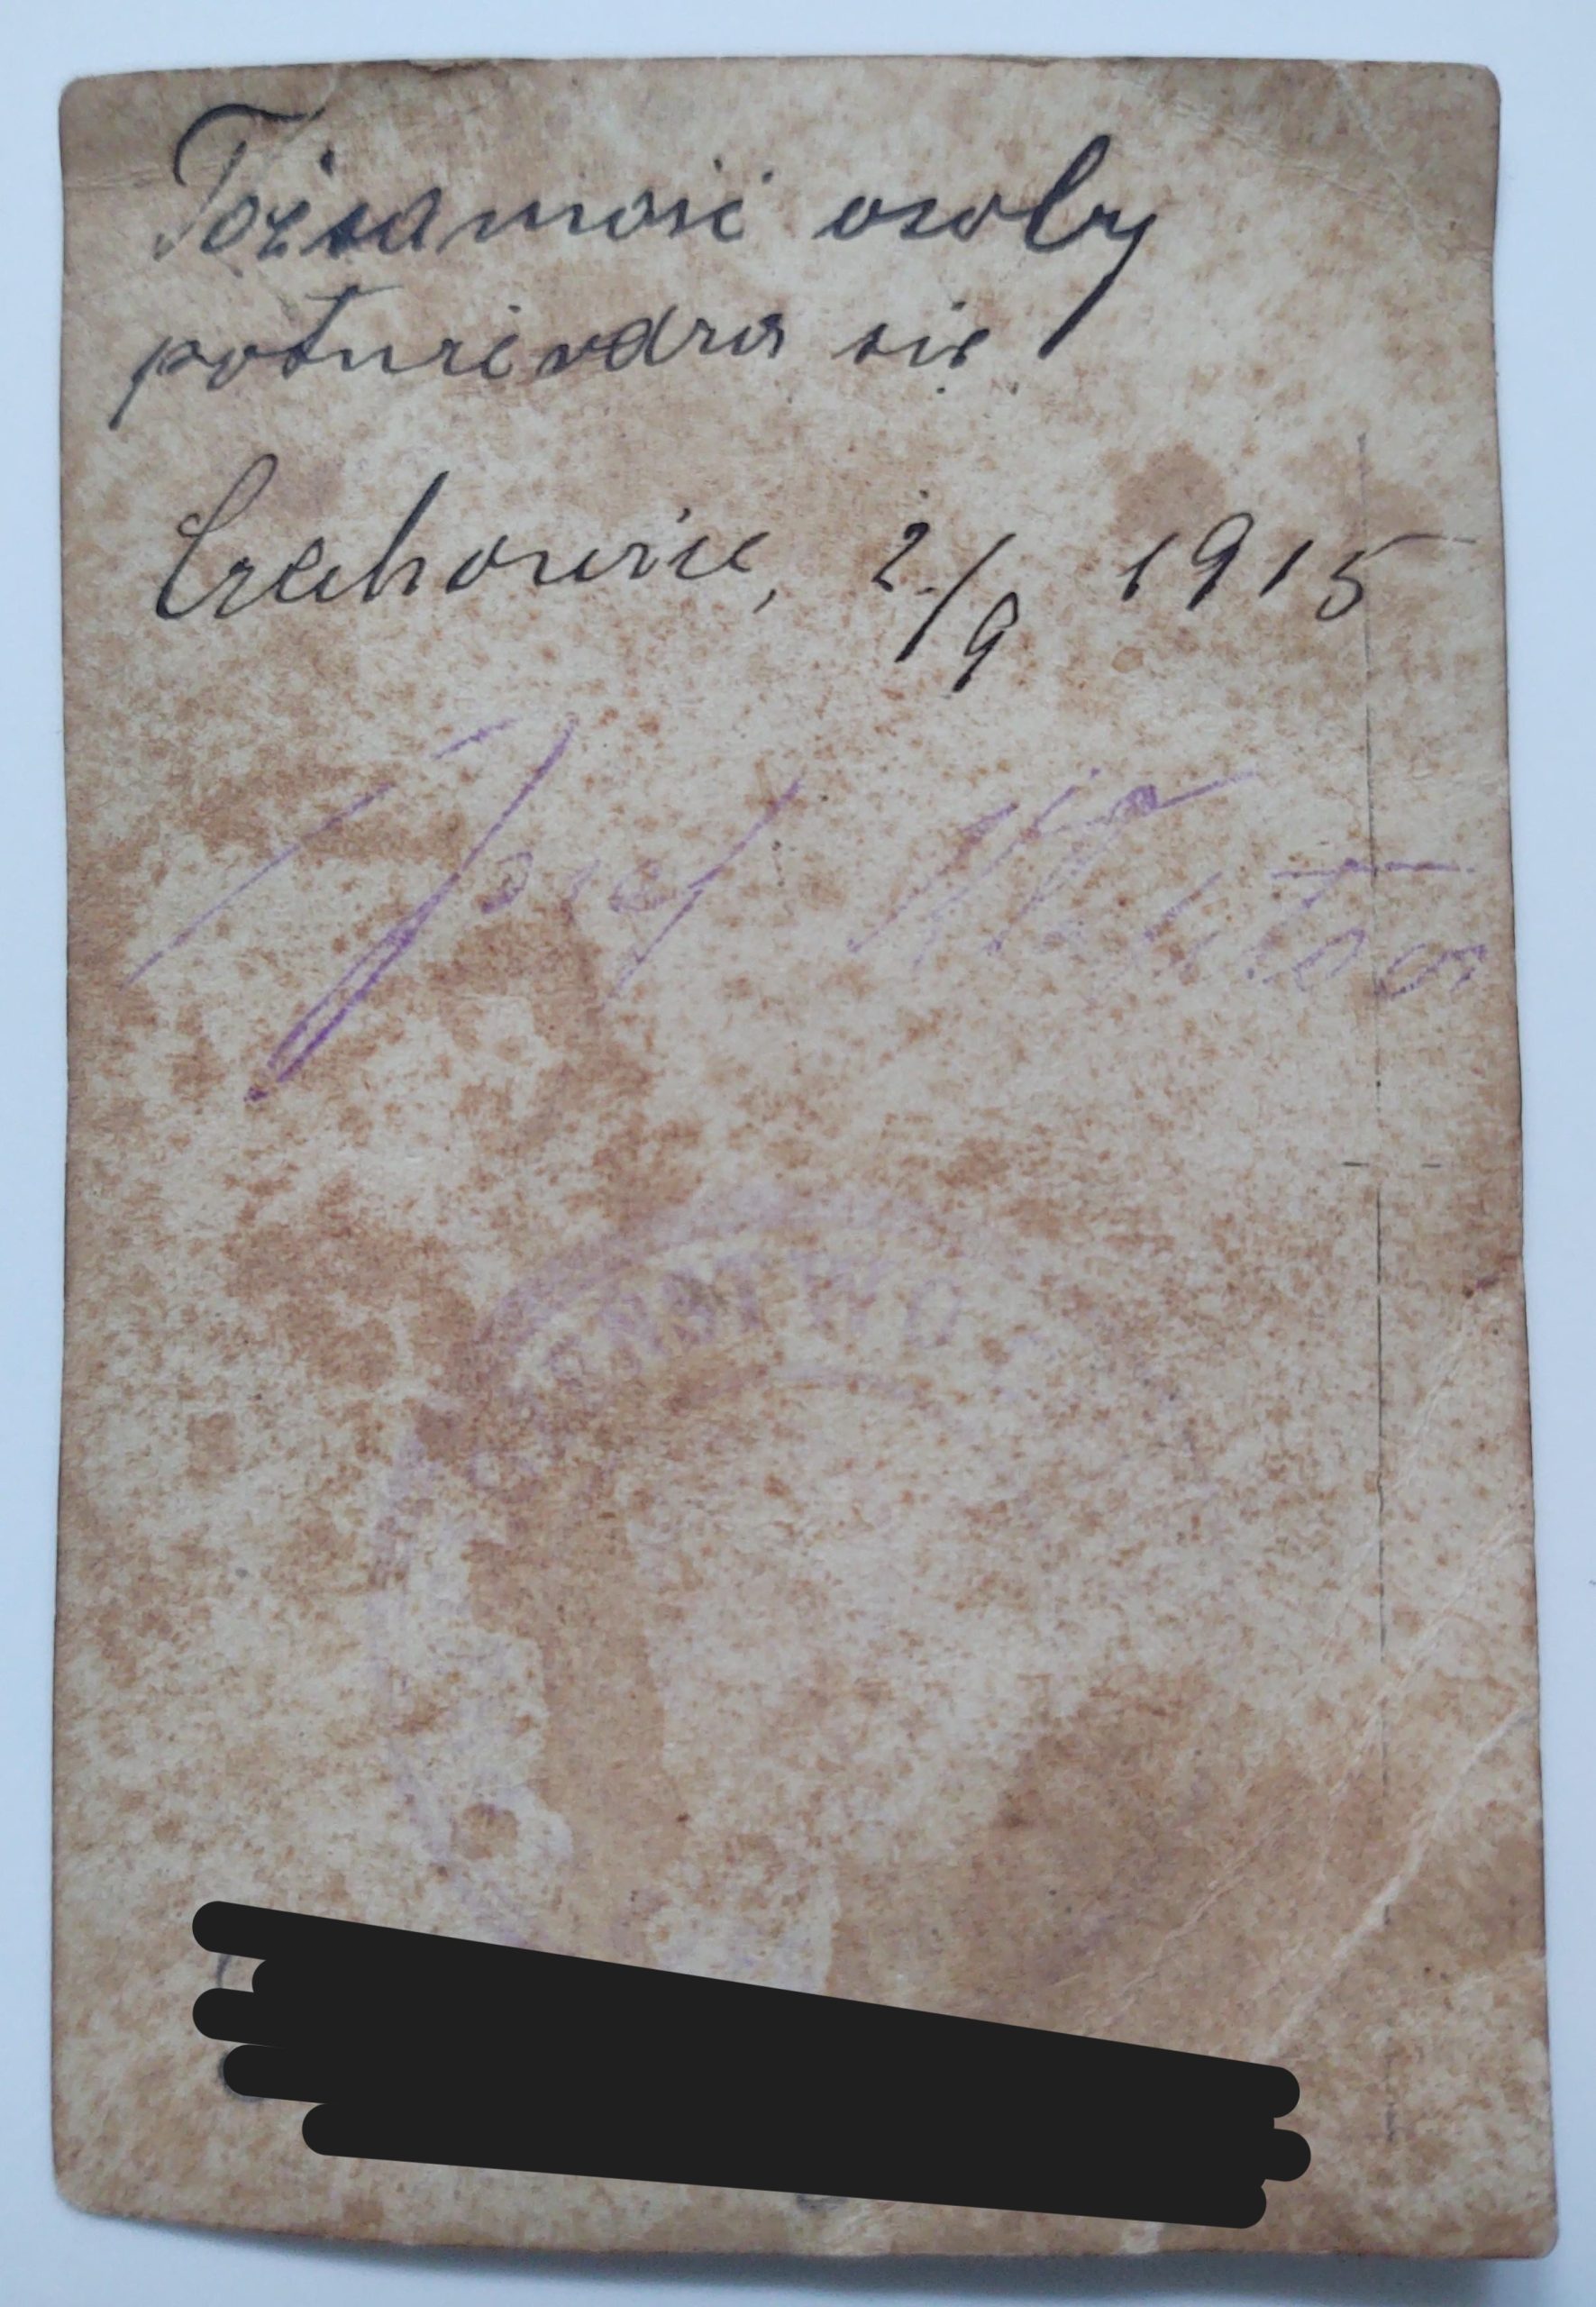 Tożsamość osoby
potwierdza się
Czechowice, 2/9 1915
Josef